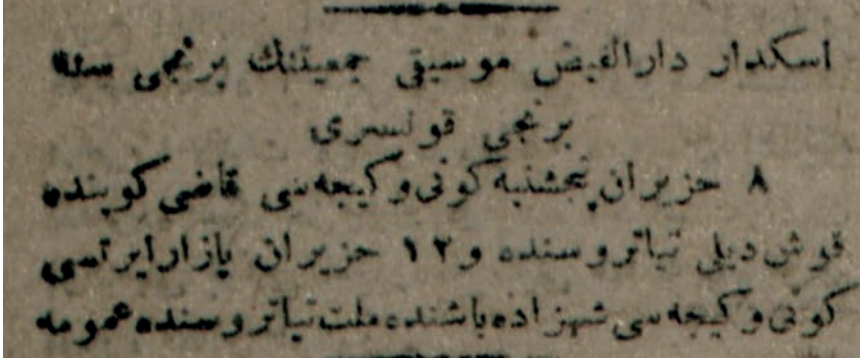 اسكدار دارالفيض موسيقى جمعيتنك برنجى سنه
برنجى قونسرى
٨ حزيران پنجشنبه كونى وكيجه‌سى قاضى كوينده
قوش ديلى تياتروسنده و ١٢ حزيران پازار ايرتسى
كونى وكيجه‌سى شهزاده باشنده ملت تياتروسنده عمومه